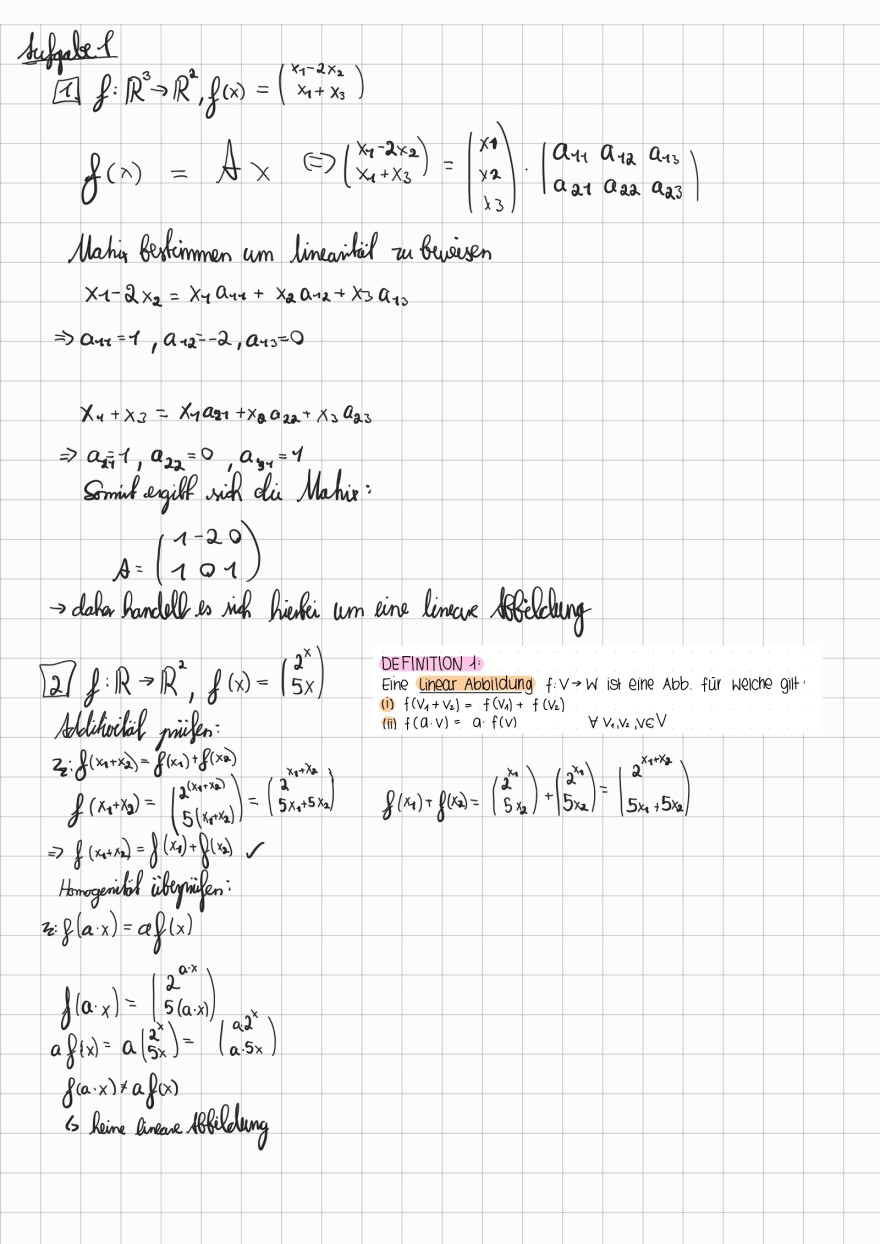 Aufgabe 1
1. f: ℝ³ → ℝ², f(x) = (x₁-2x₂ ; x₁ + x₃)
f(x) = A x ⇔ (x₁-2x₂ ; x₁+x₃) = (x1 ; x2 ; x3) · (a₁₁ a₁₂ a₁₃ ; a₂₁ a₂₂ a₂₃)
Matrix bestimmen um linearität zu beweisen
x₁-2x₂ = x₁a₁₁ + x₂a₁₂ + x₃a₁₃
⇒ a₁₁ = 1, a₁₂ = -2, a₁₃ = 0
x₁ + x₃ = x₁a₂₁ + x₂a₂₂ + x₃a₂₃
⇒ a₂₁ = 1, a₂₂ = 0, a₃₁ = 1
Somit ergibt sich die Matrix:
A = (1 -2 0 ; 1 0 1)
→ daher handelt es sich hierbei um eine lineare Abbildung
2 f: ℝ → ℝ², f(x) = (2ˣ ; 5x)
DEFINITION 1:
Eine linear Abbildung f: V → W ist eine Abb. für welche gilt:
(i) f(v₁ + v₂) = f(v₁) + f(v₂)
(ii) f(a·v) = a· f(v) ∀ v₁,v₂,v∈V
Additivität prüfen:
zz: f(x₁+x₂) = f(x₁)+f(x₂)
f(x₁+x₂) = (2^(x₁+x₂) ; 5(x₁+x₂)) = (2^x₁+x₂ ; 5x₁+5x₂) f(x₁) + f(x₂) = (2^x₁ ; 5x₂) + (2^x₁ ; 5x₂) = (2^x₁+x₂ ; 5x₁+5x₂)
⇒ f(x₁+x₂) = f(x₁) + f(x₂) ✓
Homogenität überprüfen:
zz: f(a·x) = a f(x)
f(a·x) = (2^a·x ; 5(a·x))
a f(x) = a (2ˣ ; 5x) = (a2ˣ ; a·5x)
f(a·x) ≠ a f(x)
↳ keine lineare Abbildung